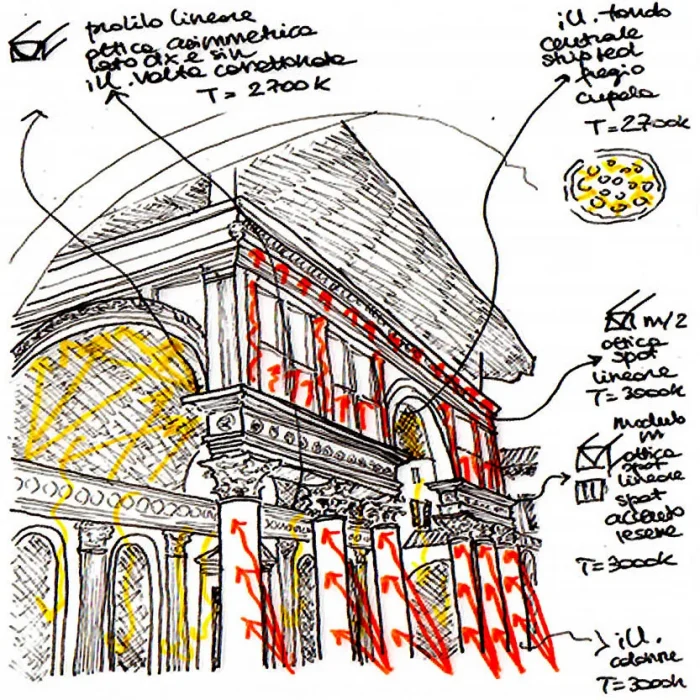 profilo lineare
ottica asimmetrica
lato dx e sin
ill. volta cassettonata
T = 2700k
ill. tondo
centrale
stripled
fregio
cupola
T=2700k
m/2
ottica
spot
lineare
T=3000k
modulo
m
ottica
spot
lineare
spot
accento
lesene
T=3000k
ill.
colonne
T=3000k